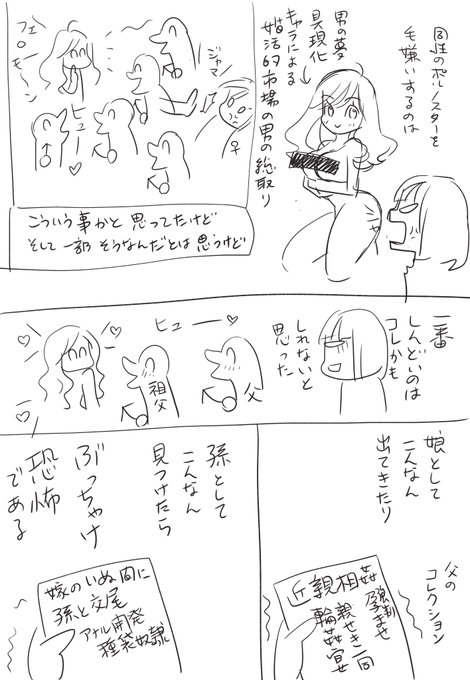 同性のポルノスターを
毛嫌いするのは
男の夢
具現化
キャラによる
婚活的市場の男の総取り
ジャマ
フェロモ〜ン
ヒュー♡
♀
こういう事かと思ってたけど
そして一部そうなんだとは思うけど
一番
しんどいのは
コレかも
しれないと
思った
ヒュー♡
父
祖父
娘として
こんなん
出てきたり
父の
コレクション
近親相姦
強制孕ませ
親せき一同
輪姦宴
孫として
こんなん
見つけたら
ぶっちゃけ
恐怖
である
嫁のいぬ間に
孫と交尾
アナル開発
種袋奴隷